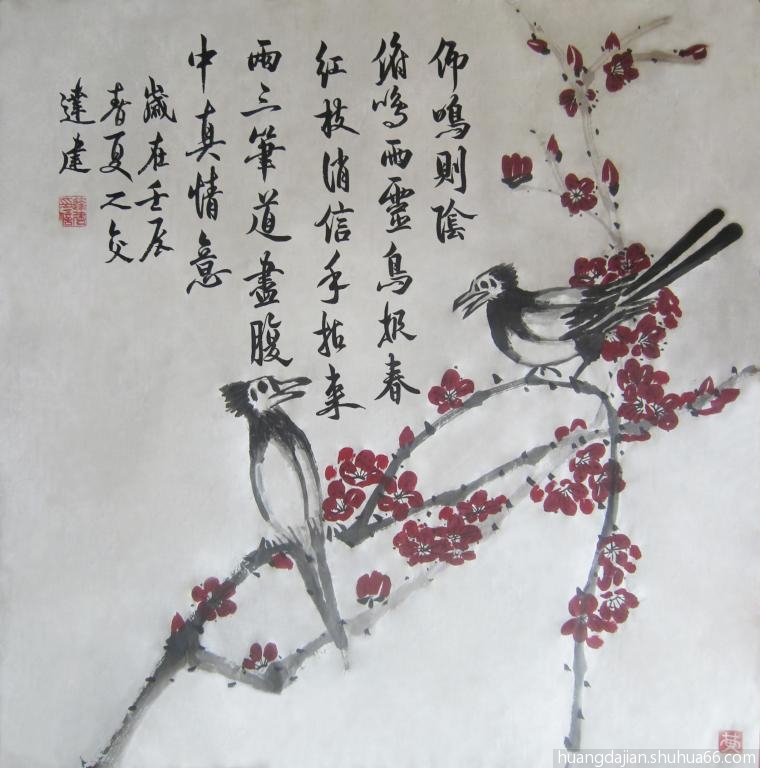 仰鳴則陰
俯鳴雨靈鳥报春
红枝消信手拈来
两三筆道盡腹
中真情意
歲在壬辰
春夏之交
達建
huangdajian.shuhua66.com